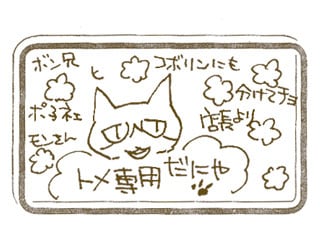 ボン兄
と
コボリンにも
分けてチョ
ポ子社
モンさん
店長より
トメ専用だにゃ